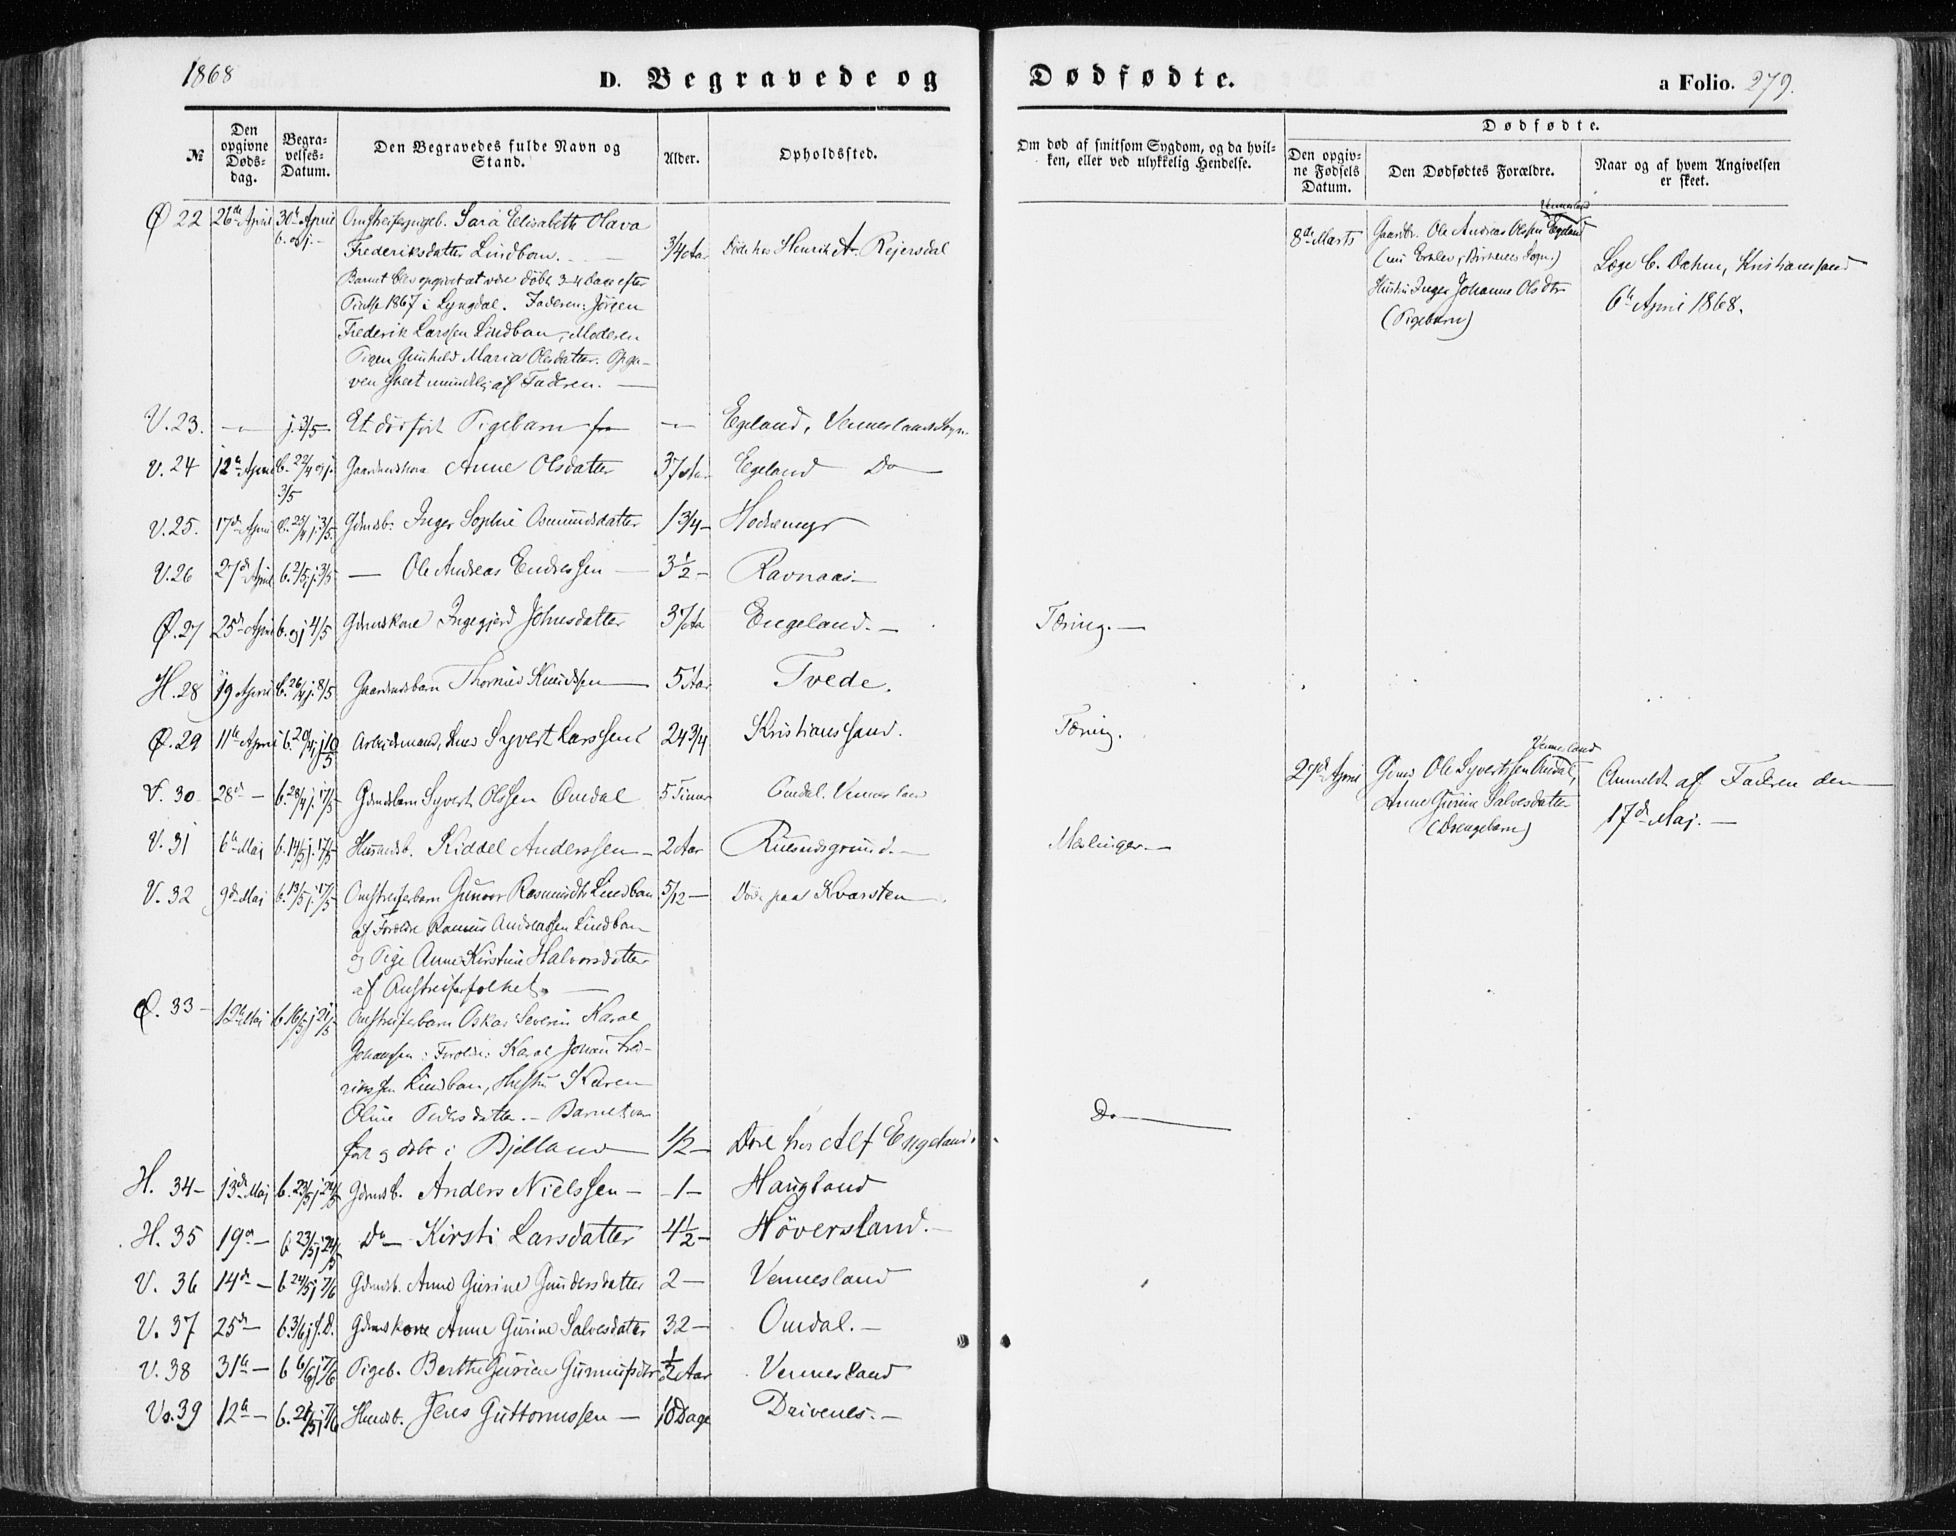 1868
D. Begravede og Dødfødte.
a Folio. 279.
№
Den opgivne Døds-dag.
Begra-velses-Datum.
Den Begravedes fulde Navn og Stand.
Alder.
Opholdssted.
Om død af smitsom Sygdom, og da hvil-ken, eller ved ulykkelig Hendelse.
Dødfødte.
Den opgiv-ne Fødsels Datum.
Den Dødfødtes Forældre.
Naar og af hvem Angivelsen er skeet.
Ø 22 26de April 30te April b. og j. Omstreiferpigeb. Sara Elisabeth Olava 3/4 Aar Døde hos Henrik A. Reiersdal
Frederiksdatter Lindbom.
Barnet blev opgivet at være døbt 3-4 Dage efter
Pintse 1867 i Lyngdal. Faderen: Jörgen
Frederik Larssen Lindban, Moderen
Pigen Gunhild Maria Olsdatter. Opga-
ven skeet mundtlig af Faderen.
8de Marts
Vennesland
Gaardbr. Ole Andreas Olsen Egeland
Hustru Inger Johanne Olsdtr
(Pigebarn)
Læge C. Dahm, Kristianssand
6te April 1868.
V. 23. — j. 3/5 Et dødfødt Pigebarn — Egeland, Venneslands Sogn
V. 24 12te April b. 22/4 og j. 3/5 Gaardmdskone Anne Olsdatter 37 Aar Egeland Do
V. 25. 17de April b. 25/4 j. 3/5 Gdmdsb. Inger Sophie Osmundsdatter 1 3/4 — Hodnemyr
V. 26 27de April b. 2/5 j. 3/5 — Ole Andreas Endressen 3 1/2 — Ravnaas
Ø. 27 25de April b. og j 4/5 Gdmdskone Ingegjerd Johnsdatter 37 Aar Engeland. — Tæring. —
H. 28 19 April b. 26/4 j. 8/5 Gaardmdsbarn Thomas Knudssen 5 Aar Tvede.
Ø. 29 11te April b. 20/4 j 10/5 Arbeidsmand, Syvert Larssen 24 3/4 Kristianssand. Tæring.
V. 30 28de — b. 28/4 j. 17/5 Gdmdsbarn Syvert Olssen Omdal 5 Timer Omdal. Vennesland
27de April
Vennesland
Gdmd Ole Syvertssen Omdal,
Anne Gurine Salvesdatter
(Drengebarn)
Anmeldt af Faderen den
17de Maj. —
V. 31 6te Maj b. 14/5 j. 17/5 Husmdsb. Kiddel Anderssen — 2 Aar Mæslinger. —
V. 32 9de Maj b. 13/5 j. 17/5 Omstreiferbarn Gunvor Rasmusdtr Lindban 5/12 — Død paa Kvarsten
af Forældre Rasmus Andreassen Lindban
og Pige Anne Kirstine Halvorsdatter
af Omstreiferfolket. —
Ø. 33 — 12te Maj b. 16/5 j 21/5 Omstreiferbarn Oskar Severin Karal
Johanssen: Forældre: Karal Johan Fred-
rikssen Lindban, Hustru Karen
Oline Pedersdatter. — Barnet var
født og døbt i Bjelland 1/2 — Død hos Alf Engeland. Do —
H. 34 — 13de Maj b. 23/5 j 24/5 Gdmdsb. Anders Nielssen — 1 — Haugland
H. 35 19de — b. 23/5 j 24/5 Do — Kirsti Larsdatter 4 1/2 — Höversland. —
V. 36 14de — b. 24/5 j 7/6 Gdmdsb. Anne Gurine Gundersdatter 2 — Vennesland
V. 37 25de — b. 3/6 j s. D. Gdmskone Anne Gurine Salvesdatter 32 — Omdal. —
V. 38 31te — b 6/6 j 7/6 Pigeb. Berthe Gurine 1/2 Aar Vennesland
V. 39 12te — b. 21/5 j 7/6 Husmdsb. Jens Guttormssen — 10 Dage Drivenes. —